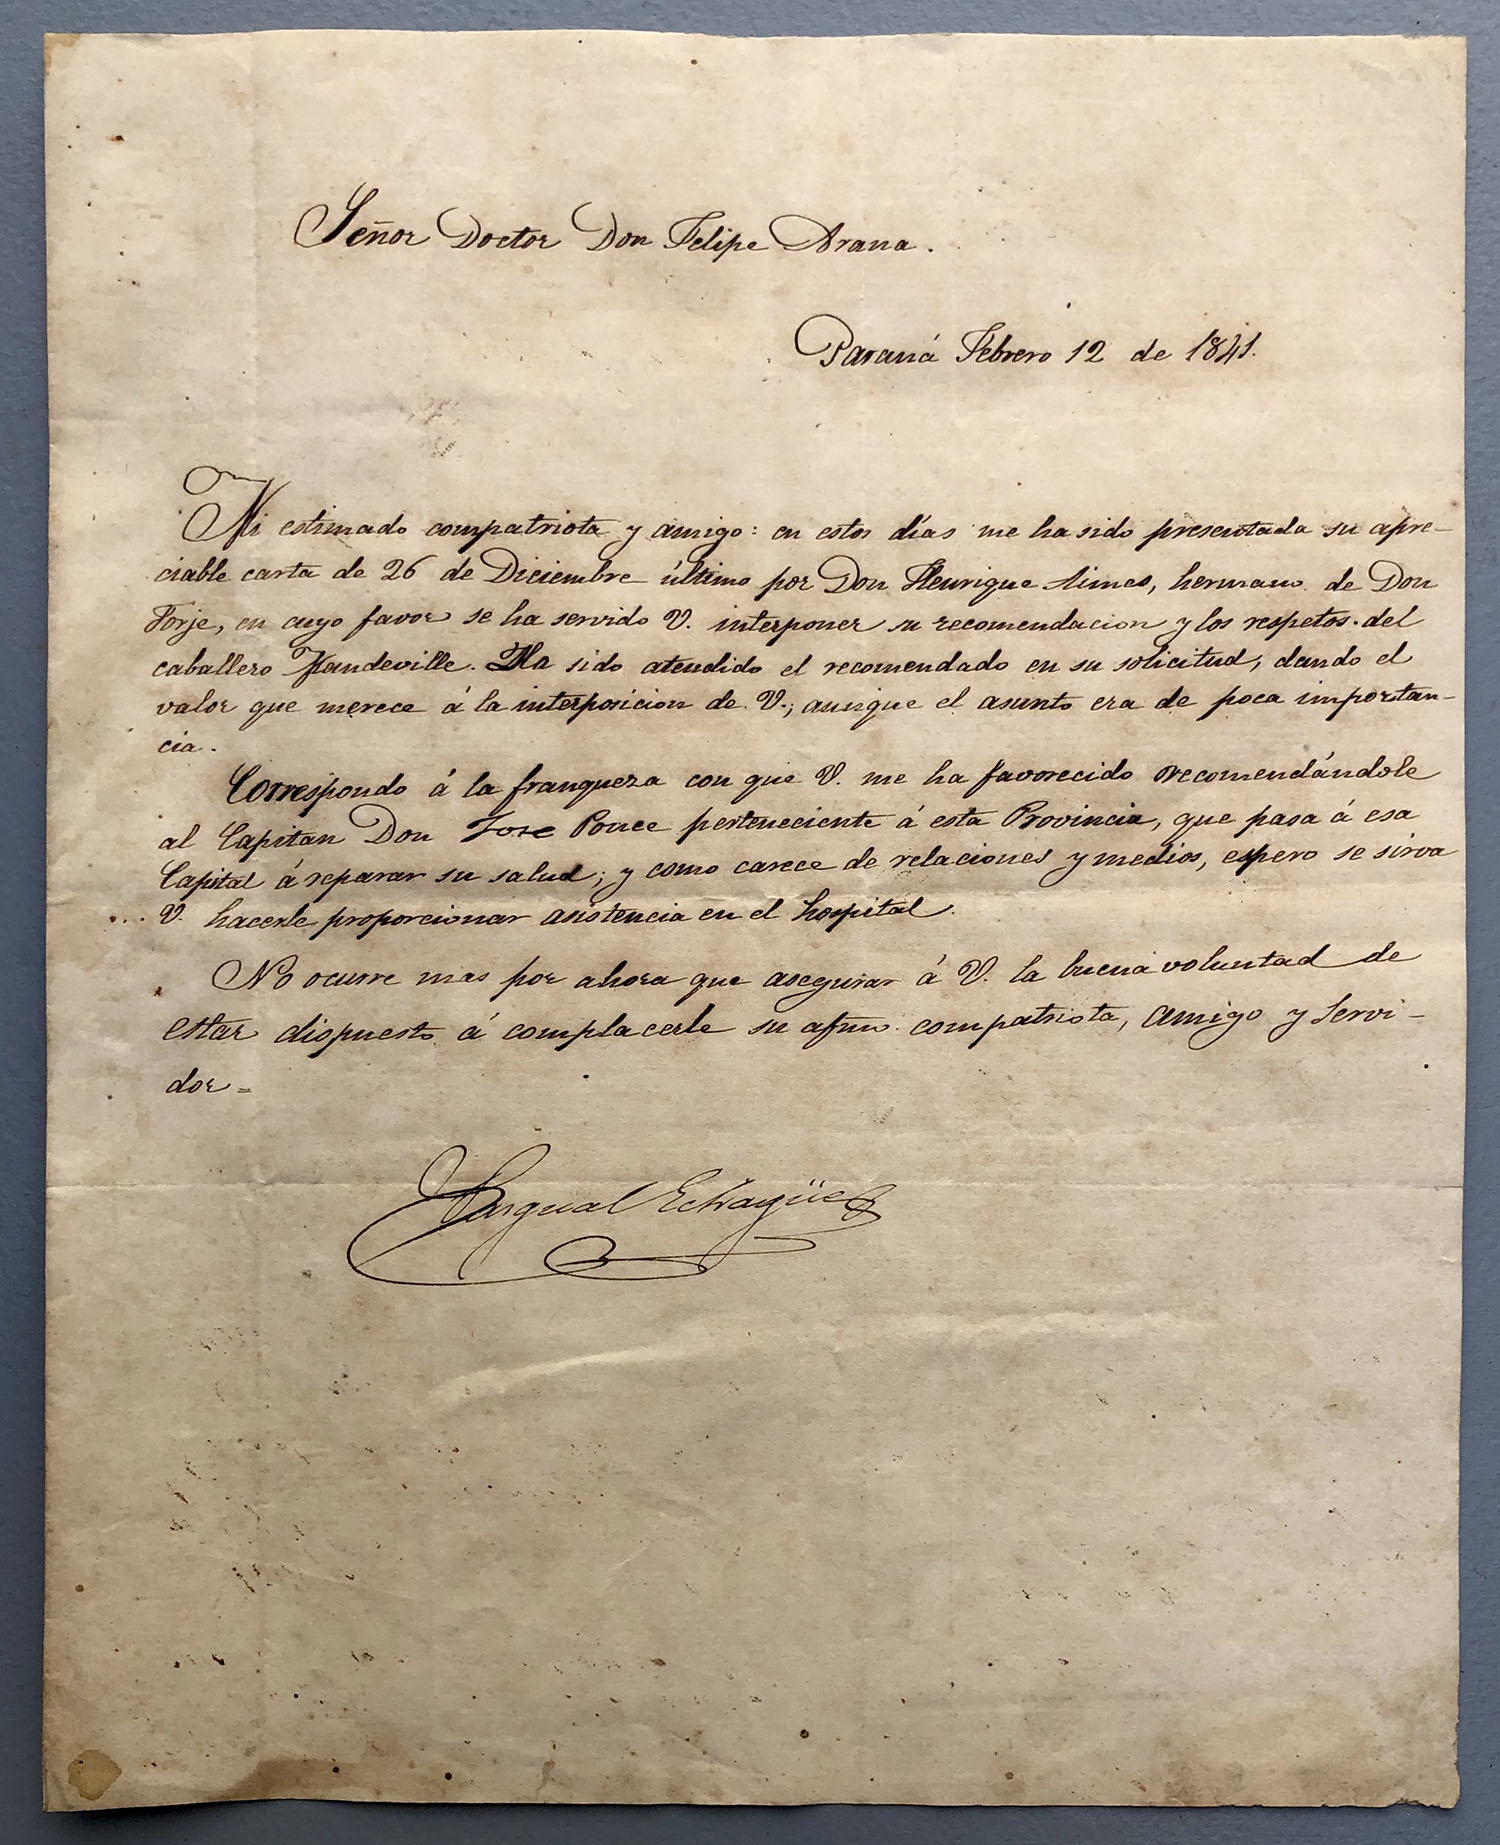 Señor Doctor Don Felipe Arana.
Paraná Febrero 12 de 1841.
Mi estimado compatriota y amigo: en estos días me ha sido presentada su apre-
ciable carta de 26 de Diciembre último por Don Henrique, hermano de Don
Jorje, en cuyo favor se ha servido V. interponer su recomendacion y los respetos del
caballero Mandeville. Ha sido atendido el recomendado en su solicitud, dando el
valor que merece á la interposicion de V.; aunque el asunto era de poca importan-
cia.
Correspondo á la franqueza con que V. me ha favorecido recomendándole
al Capitan Don Jose Ponce perteneciente á esta Provincia, que pasa á esa
Capital á reparar su salud; y como carece de relaciones y medios, espero se sirva
V. hacerle proporcionar asistencia en el hospital.
No ocurre mas por ahora que asegurar á V. la buena voluntad de
estar dispuesto á complacerle su afmo. compatriota, amigo y servi-
dor =
Pasqual Echagüe